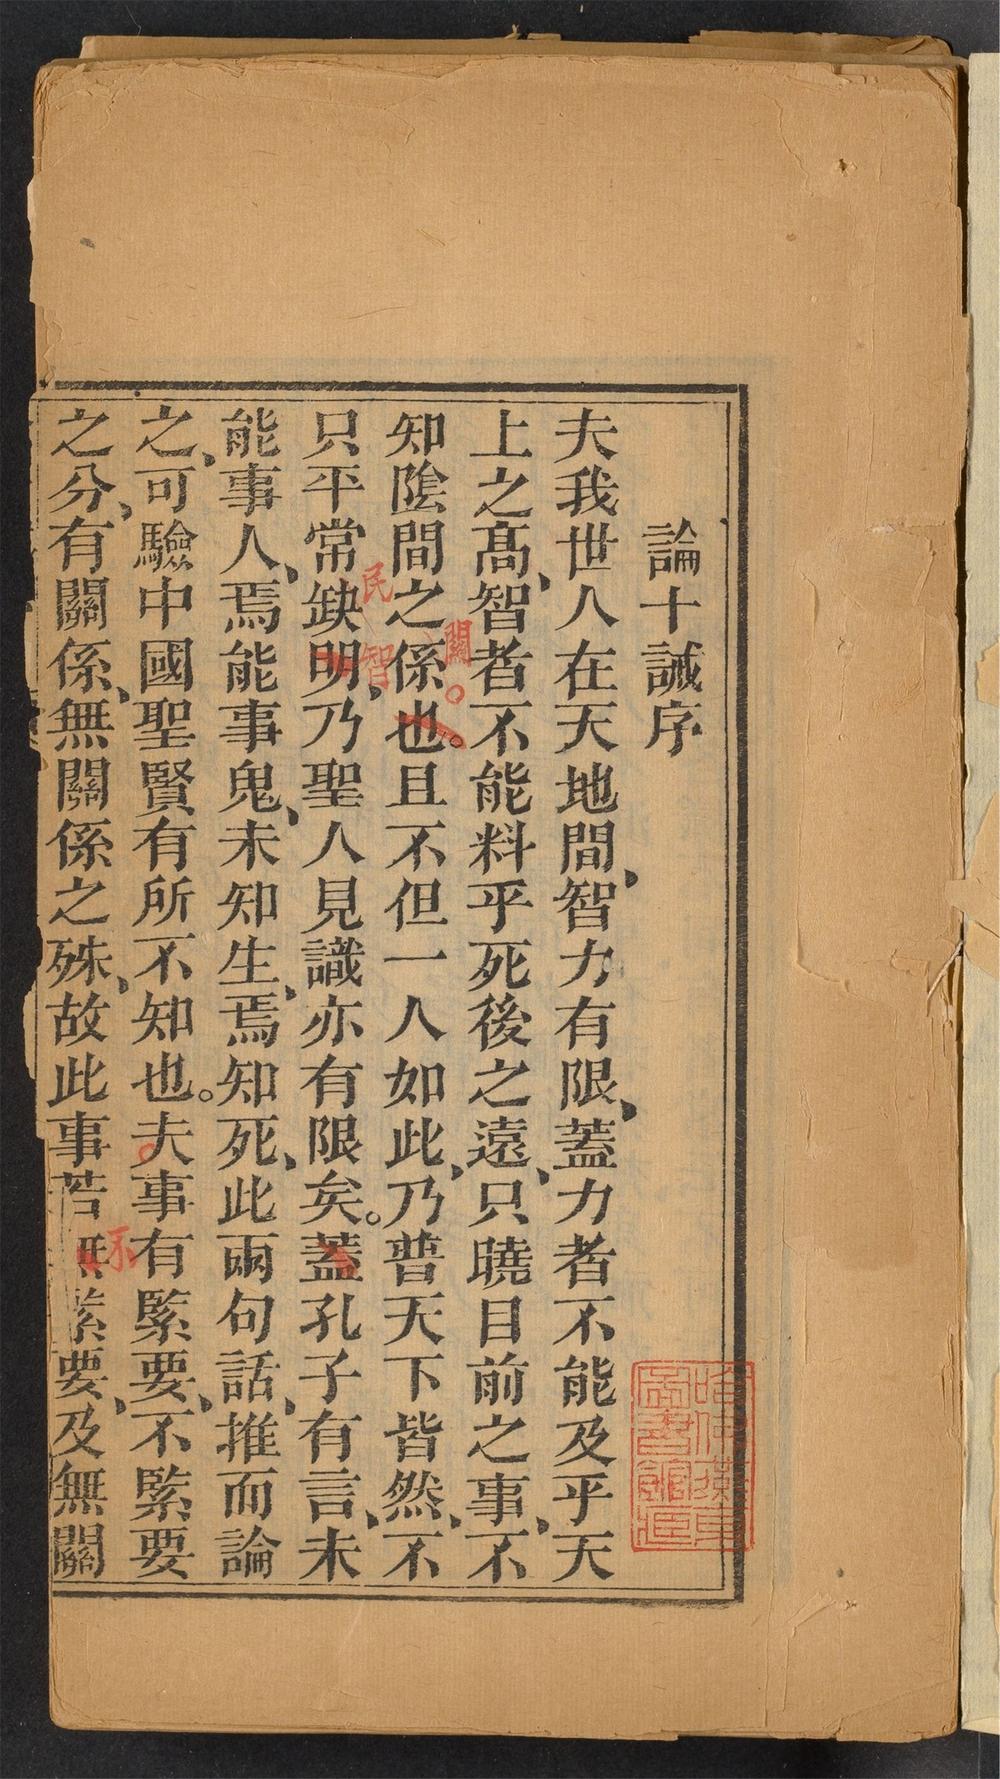 論十誡序
夫我世人在天地間、智力有限、蓋力者不能及乎天
上之高、智者不能料乎死後之遠、只曉目前之事、不
知陰間之係也。且不但一人如此、乃普天下皆然、不
關
只平常缺明、乃聖人見識亦有限矣。蓋孔子有言、未
民智
能事人、焉能事鬼、未知生、焉知死、此兩句話、推而論
之、可驗中國聖賢有所不知也。夫事有緊要、不緊要
不
之分、有關係、無關係之殊、故此事若無緊要、及無關
哈佛漢和
圖書館